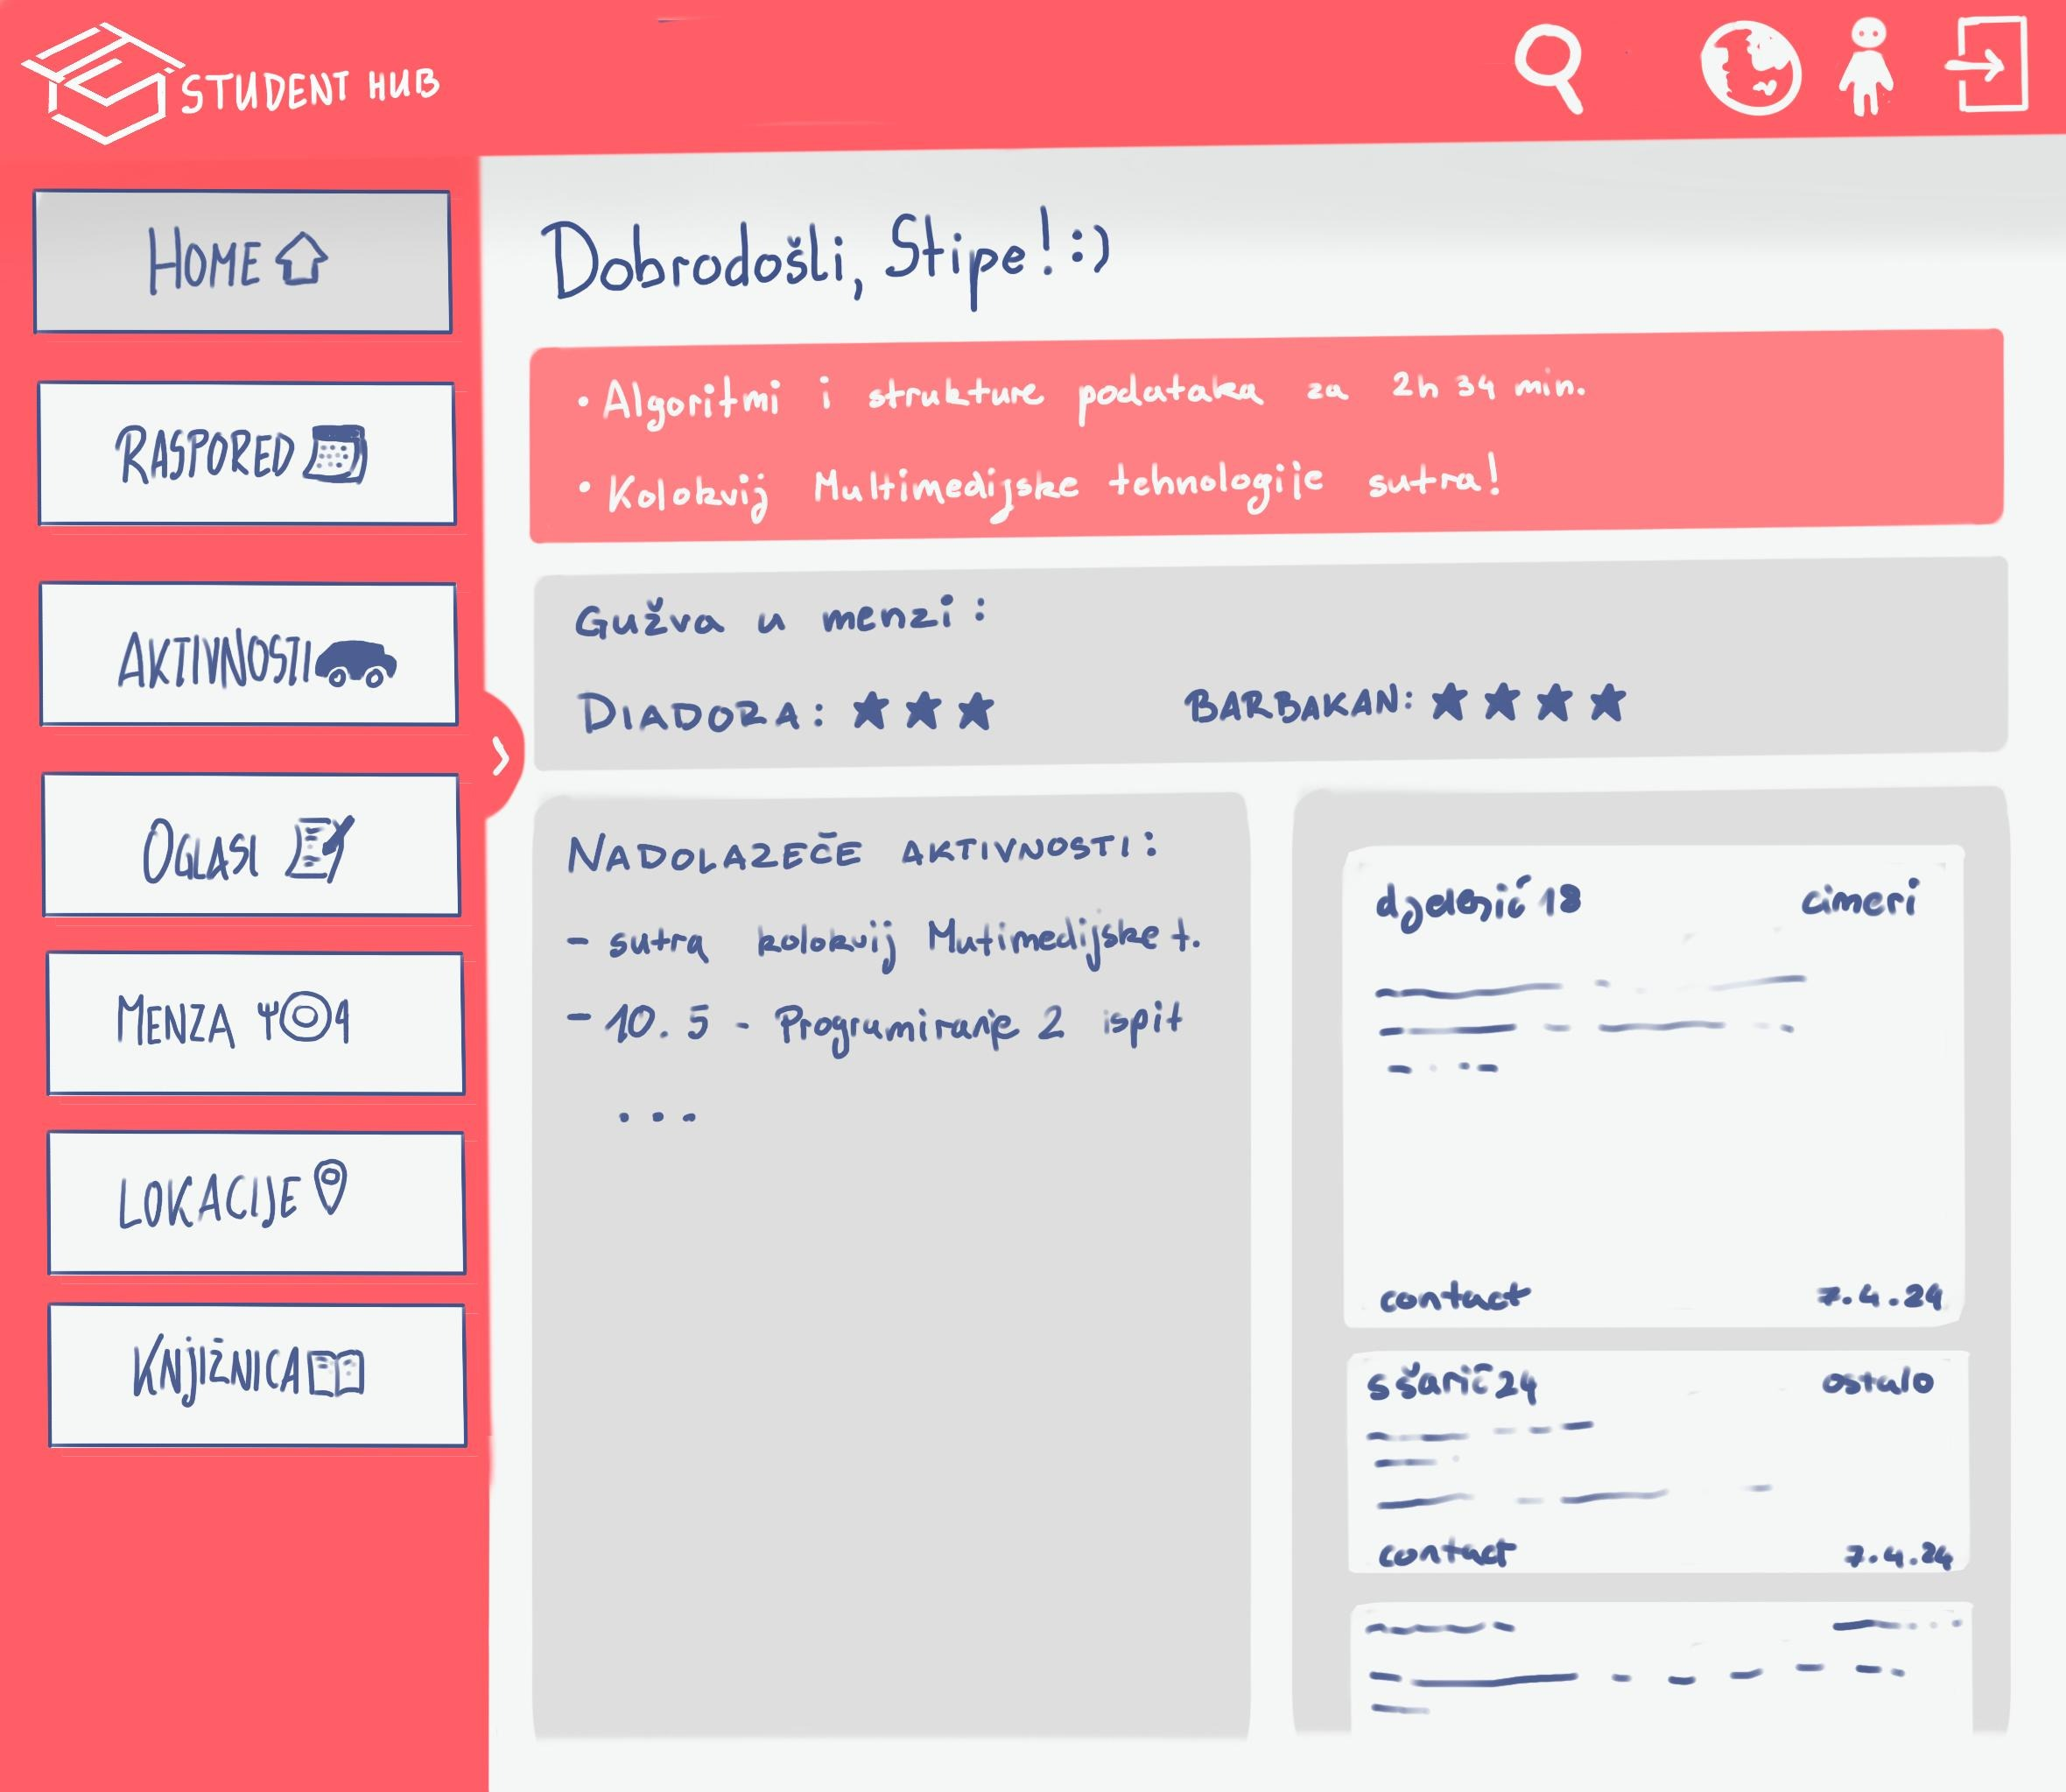 STUDENT HUB
HOME
RASPORED
AKTIVNOSTI
OGLASI
MENZA
LOKACIJE
KNJIŽNICA
Dobrodošli, Stipe! :)
• Algoritmi i strukture podataka za 2h 34 min.
• Kolokvij Multimedijske tehnologije sutra!
Gužva u menzi:
DIADORA: ★★★
BARBAKAN: ★★★★
NADOLAZEČE AKTIVNOSTI:
- sutra kolokvij Mutimedijske t.
- 10. 5 - Programiranje 2 ispit
...
cimeri
contact 7.4.24
sšarić24 ostalo
contact 7.4.24